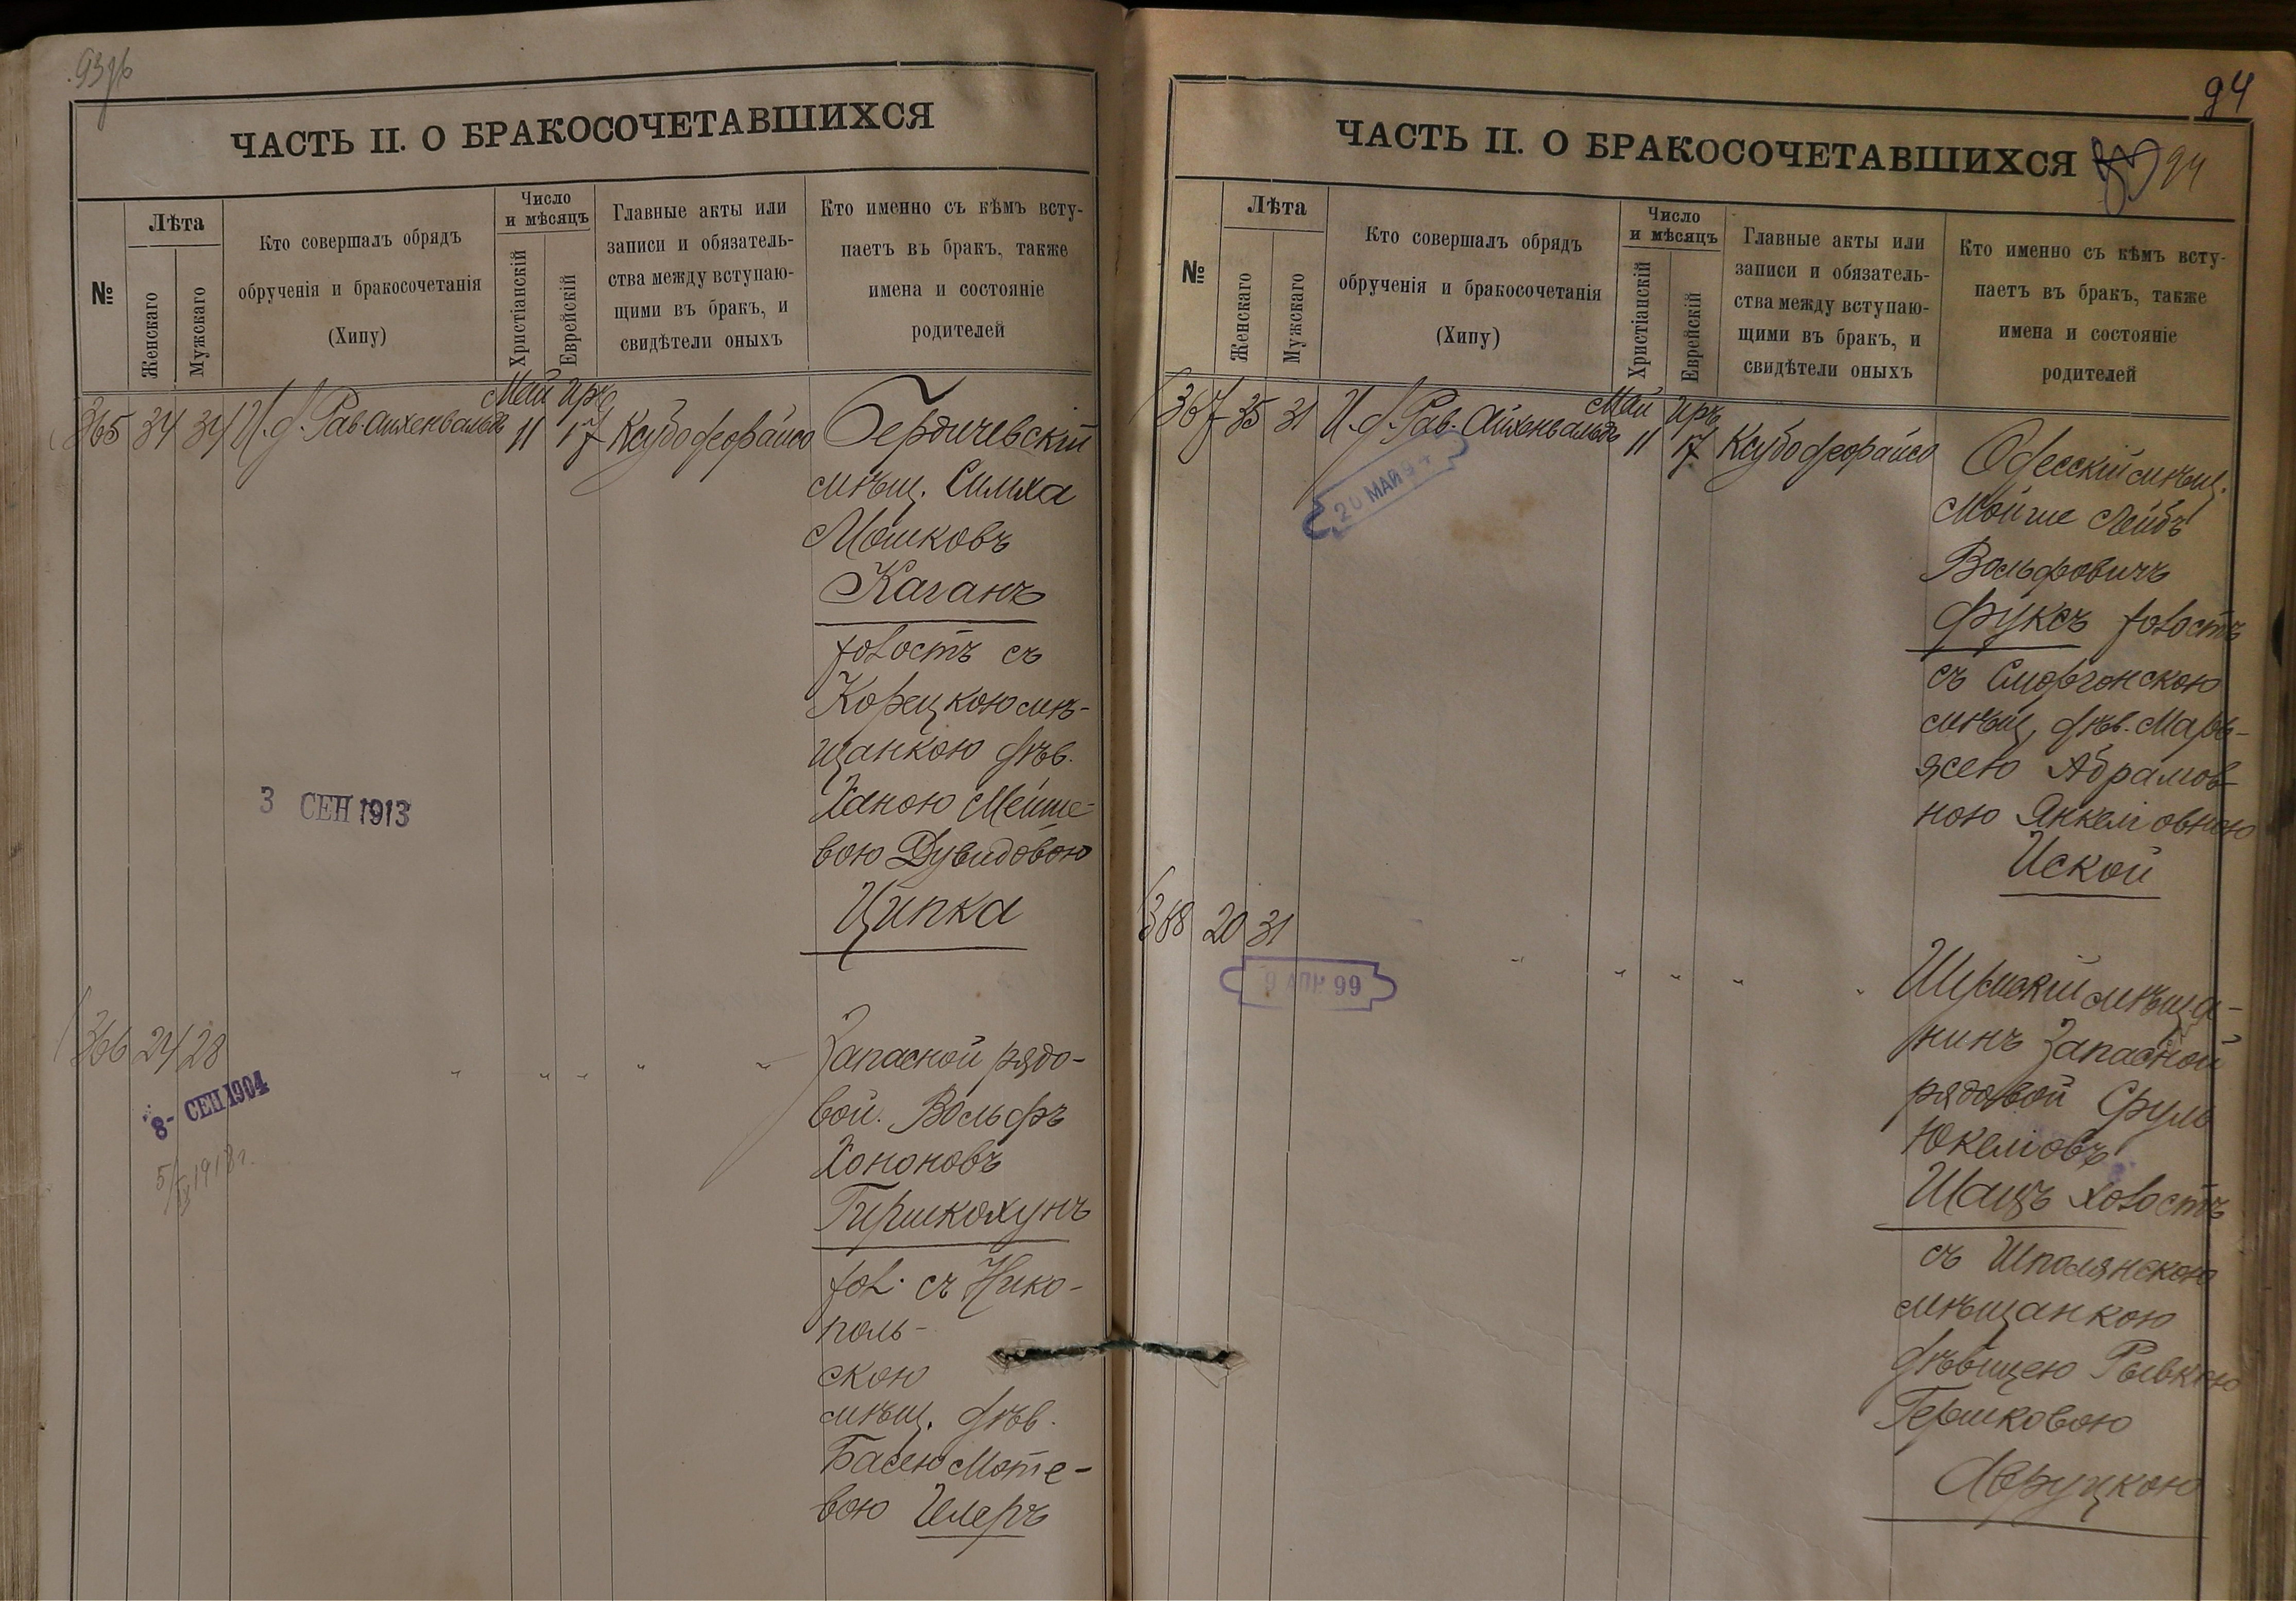 93 об
ЧАСТЬ II. О БРАКОСОЧЕТАВШИХСЯ
№
Лѣта
Женскаго
Мужскаго
Кто совершалъ обрядъ
обрученія и бракосочетанія
(Хипу)
Число
и мѣсяцъ
Христіанскій
Еврейскій
Главные акты или
записи и обязатель-
ства между вступаю-
щими въ бракъ, и
свидѣтели оныхъ
Кто именно съ кѣмъ всту-
паетъ въ бракъ, также
имена и состояніе
родителей
Май Иръ
365 34 34 И. д. Рав. Айхенвальдъ 11 17 Ксубо Бердичевскій
мѣщ. Симха
Мошковъ
Каганъ
холостъ съ
Корецкою мѣ-
щанкою дѣв.
Ханою Мейше-
вою Дувидовою
Ципка
3 СЕН 1913
366 24 28 Запасной рядо-
вой. Вольфъ
Хононовъ
Гиршкохунъ
хол. съ Нико-
поль-
скою
мѣщ. дѣв.
Басею Моте-
вою
8- СЕН 1904
94
ЧАСТЬ II. О БРАКОСОЧЕТАВШИХСЯ 94
№
Лѣта
Женскаго
Мужскаго
Кто совершалъ обрядъ
обрученія и бракосочетанія
(Хипу)
Число
и мѣсяцъ
Христіанскій
Еврейскій
Главные акты или
записи и обязатель-
ства между вступаю-
щими въ бракъ, и
свидѣтели оныхъ
Кто именно съ кѣмъ всту-
паетъ въ бракъ, также
имена и состояніе
родителей
Май Иръ
367 35 31 И. д. Рав. Айхенвальдъ 11 17 Ксубо Одесскій мѣщ.
20 МАЙ
Мойше Лейбъ
Вольфовичъ
Фуксъ холостъ
съ Сморгонскою
мѣщ. дѣв. Марь-
ясею Абрамов-
ною Янкелевною
Иской
368 20 31
9 АПР 99
мѣща-
нинъ Запасной
рядовой Сруль
Юкелiовъ
Шацъ холостъ
съ Шполянскою
мѣщанкою
дѣвицею Рывкою
Гершковою
Овруцкою